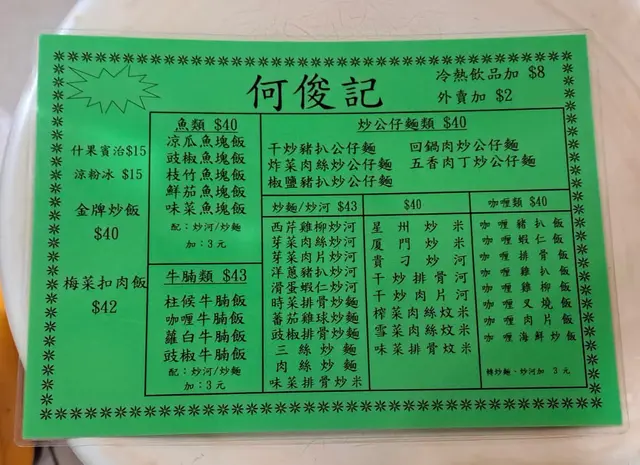 何俊記
冷熱飲品加 $8
外賣加 $2
什果賓治$15
涼粉冰 $15
金牌炒飯
$40
梅菜扣肉飯
$42
魚類 $40
凉瓜魚塊飯
豉椒魚塊飯
枝竹魚塊飯
鮮茄魚塊飯
味菜魚塊飯
配：炒河/炒麵
加：3元
牛腩類 $43
柱候牛腩飯
咖喱牛腩飯
蘿白牛腩飯
豉椒牛腩飯
配：炒河/炒麵
加：3元
炒公仔麵類 $40
干炒豬扒公仔麵 回鍋肉炒公仔麵
炸菜肉絲炒公仔麵 五香肉丁炒公仔麵
椒鹽豬扒炒公仔麵
炒麵/炒河 $43
西芹雞柳炒河
芽菜肉絲炒河
芽菜肉片炒河
洋蔥豬扒炒河
滑蛋蝦仁炒河
時菜排骨炒麵
蕃茄雞球炒麵
豉椒排骨炒麵
三絲炒麵
肉絲炒麵
味菜排骨炒米
$40
星州炒米
厦門炒米
貴刁炒河
干炒排骨河
干炒肉片河
榨菜肉絲炆米
雪菜肉絲炆米
味菜排骨炆米
咖喱類 $40
咖喱豬扒飯
咖喱蝦仁飯
咖喱排骨飯
咖喱雞扒飯
咖喱雞柳飯
咖喱叉燒飯
咖喱肉片飯
咖喱海鮮炒飯
轉炒麵、炒河加 3元